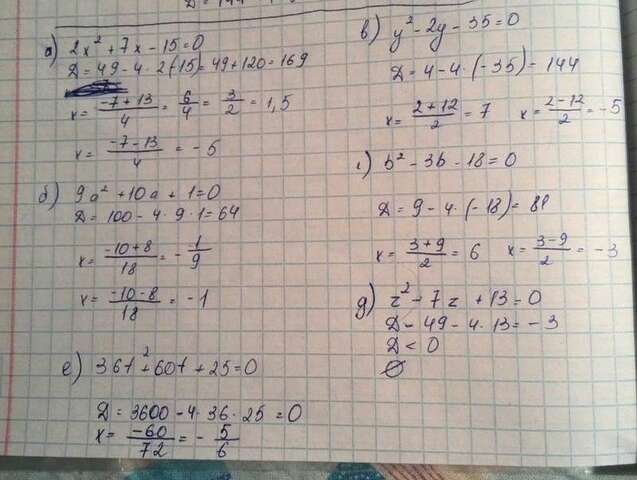 а) 2x² + 7x - 15 = 0
Д = 49 - 4 · 2 (-15) = 49 + 120 = 169
x = (-7 + 13)/4 = 6/4 = 3/2 = 1,5
x = (-7 - 13)/4 = -5
б) 9a² + 10a + 1 = 0
Д = 100 - 4 · 9 · 1 = 64
x = (-10 + 8)/18 = -1/9
x = (-10 - 8)/18 = -1
е) 36t² + 60t + 25 = 0
Д = 3600 - 4 · 36 · 25 = 0
x = -60/72 = -5/6
в) y² - 2y - 35 = 0
Д = 4 - 4 · (-35) = 144
x = (2 + 12)/2 = 7 x = (2 - 12)/2 = -5
г) b² - 3b - 18 = 0
Д = 9 - 4 · (-18) = 81
x = (3 + 9)/2 = 6 x = (3 - 9)/2 = -3
д) z² - 7z + 13 = 0
Д = 49 - 4 · 13 = -3
Д < 0
∅